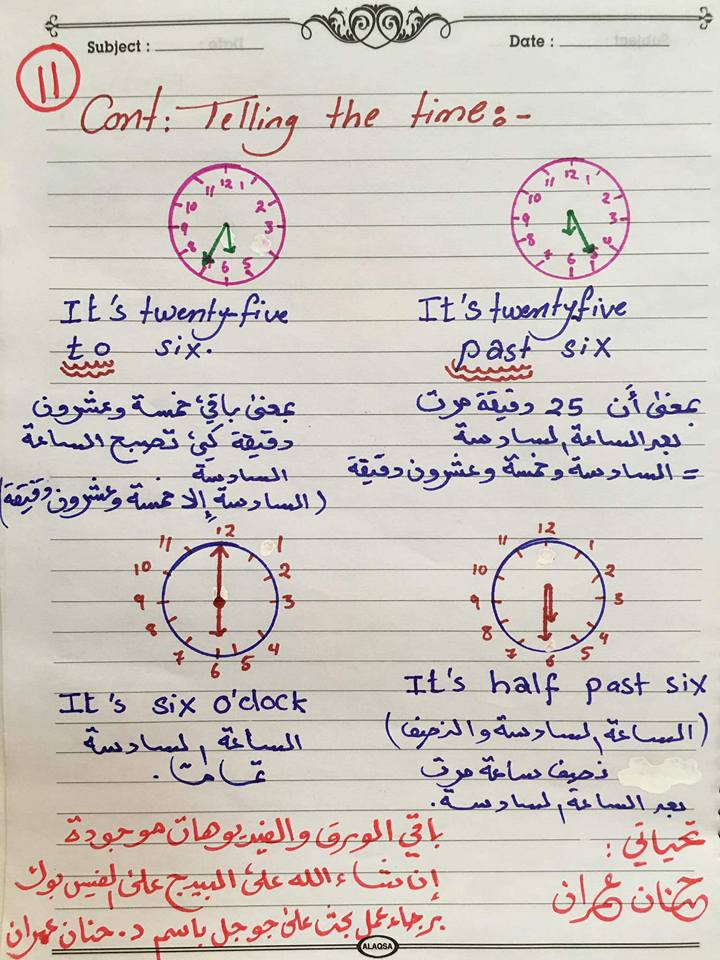 Subject :
Date :
11
Cont: Telling the time:-
12
1
2
3
4
5
6
7
8
9
10
11
12
1
2
3
4
5
6
7
8
9
10
11
It's twenty-five
to six.
بمعنى باقي خمسة وعشرون
دقيقة كي تصبح الساعة
السادسة
(السادسة إلا خمسة وعشرون دقيقة)
It's twenty-five
past six
بمعنى أن 25 دقيقة مرت
بعد الساعة السادسة
= السادسة وخمسة وعشرون دقيقة
12
1
2
3
4
5
6
7
8
9
10
11
It's six o'clock
الساعة السادسة
تماما.
12
1
2
3
4
5
6
7
8
9
10
11
It's half past six
(الساعة السادسة والنصف)
نصف ساعة مرت
بعد الساعة السادسة.
تحياتي :
حنان عمران
باقي الورق والفيديوهات موجودة
إن شاء الله على البيدج على الفيس بوك
برجاء عمل بحث على جوجل باسم د. حنان عمران
ALAQSA